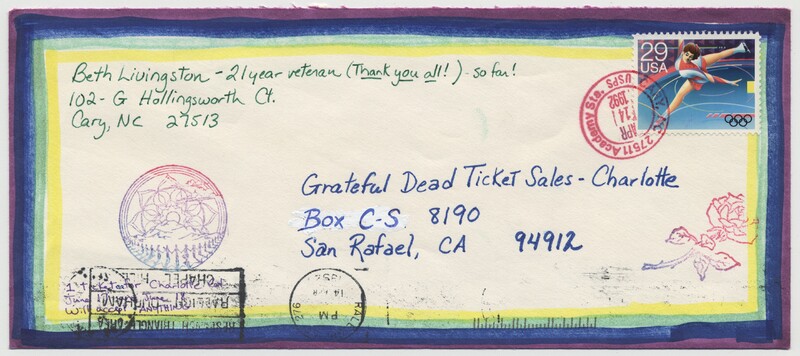 Beth Livingston - 21 year veteran (Thank you all!) - so far!
102-G Hollingsworth Ct.
Cary, NC 27513
29
USA
CARY NC 27511 Academy Sta. USPS
APR
14
1992
Grateful Dead Ticket Sales - Charlotte
Box C-S 8190
San Rafael, CA 94912
1 Ticket
Charlotte
June
Will accept ANYTHING
RESEARCH TRIANGLE AREA
RALEIGH DURHAM
CHAPEL HILL
PM
1992